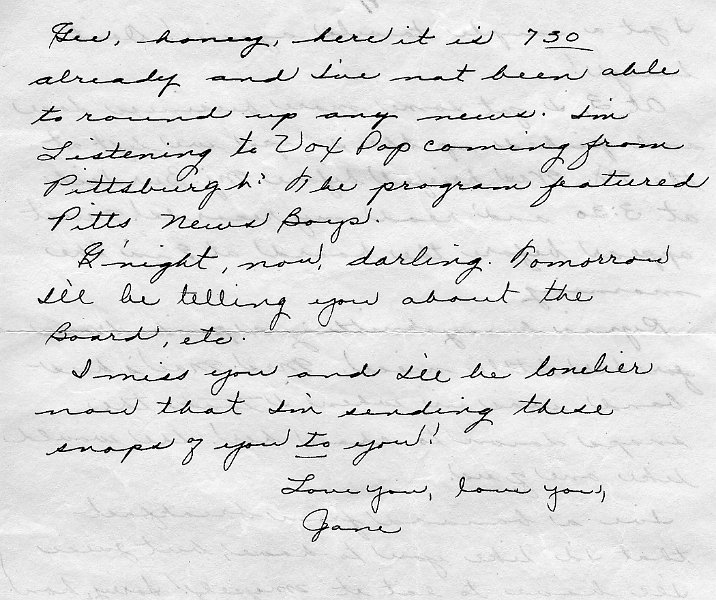 Gee, honey, here it is 7 30
already and I've not been able
to round up any news. I'm
Listening to Vox Pop coming from
Pittsburgh. The program featured
Pitts News Boys.
G'night, now, darling. Tomorrow
I'll be telling you about the
Board, etc.
I miss you and I'll be lonelier
now that I'm sending these
snaps of you to you!
Love you, love you,
Jane